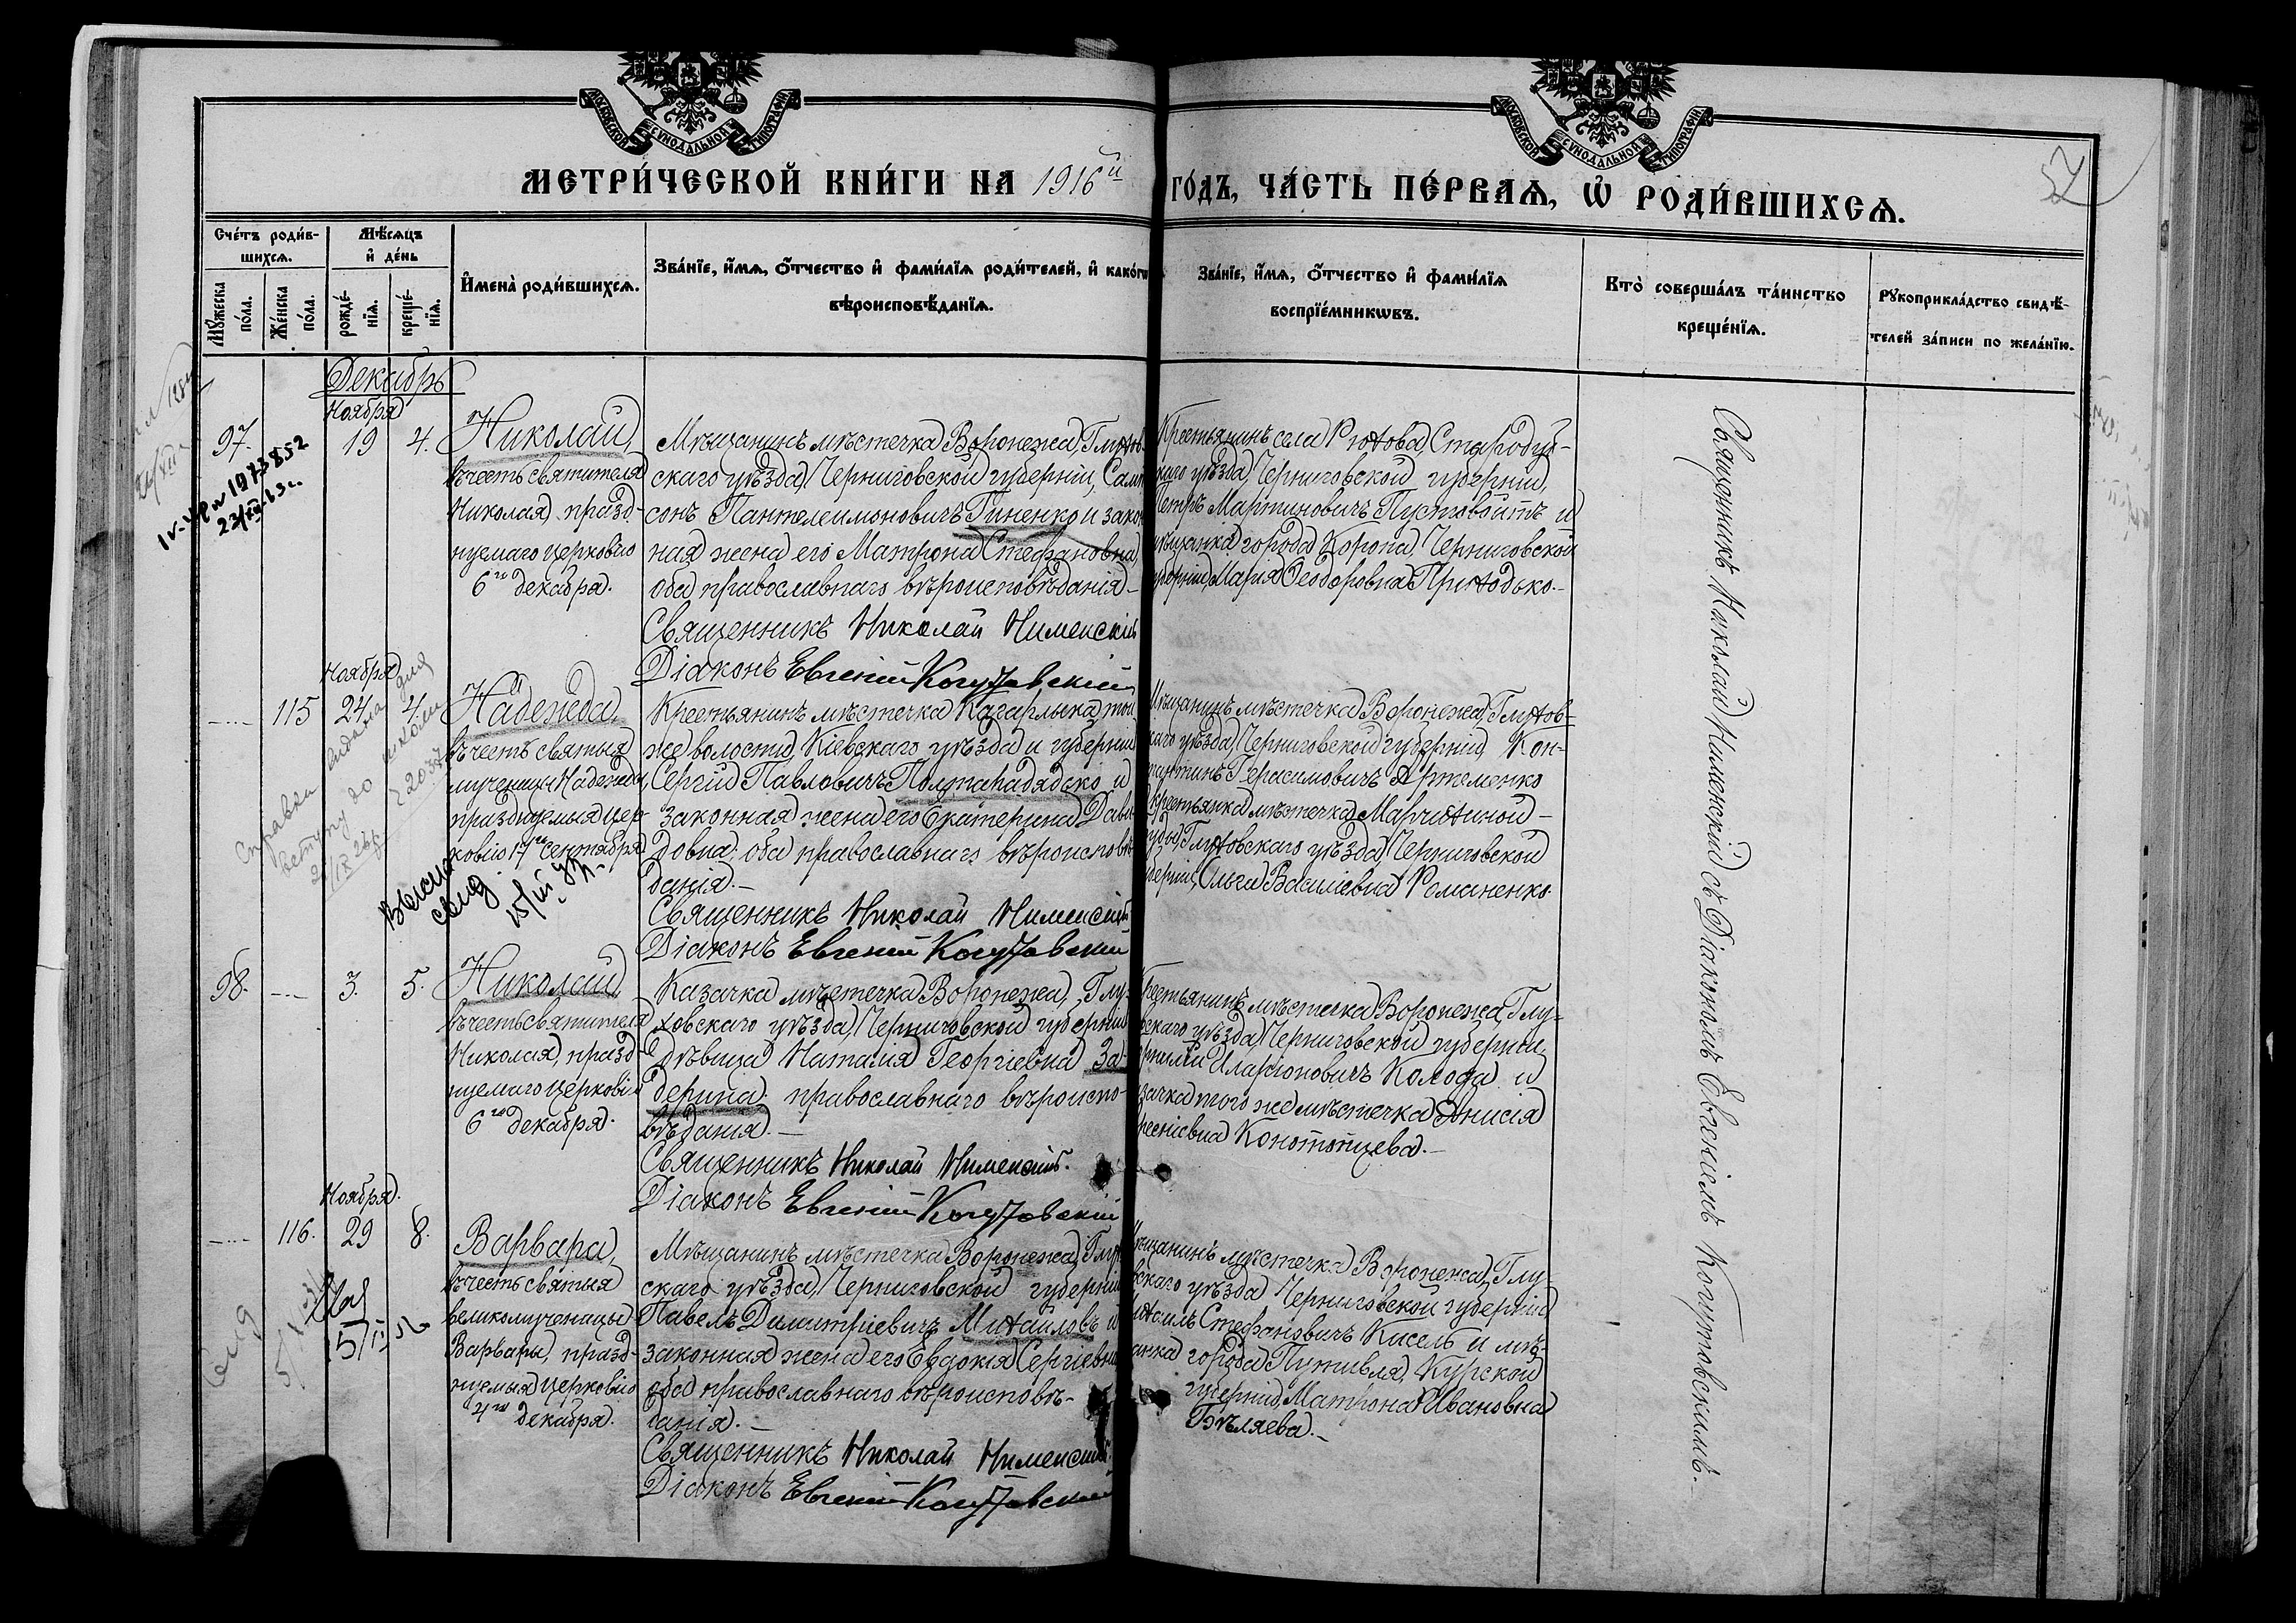 МОСКОВСКОЙ СУНОДАЛЬНОЙ ТИПОГРАФІИ
МОСКОВСКОЙ СУНОДАЛЬНОЙ ТИПОГРАФІИ
МЕТРИ́ЧЕСКОЙ КНИ́ГИ НА 1916й ГО́ДЪ, ЧА́СТЬ ПЕ́РВАѦ, Ѡ҆ РОДИ́ВШИХСѦ.
52
Сче́тъ роди́в-
шихсѧ.
Мѣ́сѧцъ
и҆ де́нь
Мꙋ́жеска по́ла.
Же́нска по́ла.
рожде́-нїѧ.
креще́-нїѧ.
И҆мена̀ роди́вшихсѧ.
Зва́нїе, и҆́мѧ, ѻ҆́тчество и҆ фами́лїѧ роди́телей, и҆ како́гѡ
вѣроисповѣ́данїѧ.
Зва́нїе, и҆́мѧ, ѻ҆́тчество и҆ фами́лїѧ
воспрїе́мникѡвъ.
Кто̀ соверша́лъ та́инство
креще́нїѧ.
Рꙋкоприкла́дство свидѣ́-
телей за́писи по жела́нїю.
Декабрь
Ноября
97. 19 4.
Николай,
въ честь святителя
Николая, празд-
нуемаго церковію
6го декабря.
Мѣщанинъ мѣстечка Воронежа, Глухов-
скаго уѣзда, Черниговской губерніи, Сам-
сонъ Пантелеимоновичъ Гиненко и закон-
ная жена его Матрона Стефановна,
оба православнаго вѣроисповѣданія.-
Священникъ Николай Нименскій
Діаконъ Евгеній Когутовскій
Крестьянинъ села Рюхова, Стародуб-
скаго уѣзда, Черниговской губерніи,
Петръ Мартиновичъ Пустовойтъ и
мѣщанка города Коропа, Черниговской
губерніи, Марія Ѳеодоровна Приходько.-
1973852
Ноября
115 24 4.
Надежда,
въ честь святыя
мученицы Надежды,
празднуемыя цер-
ковію 17го сентября
Крестьянинъ мѣстечка Кагарлыка, той
же волости, Кіевскаго уѣзда и губерніи
Сергій Павловичъ Полтарадядско и
законная жена его Екатерина Дави-
довна, оба православнаго вѣроисповѣ-
данія.-
Священникъ Николай Нименскій
Діаконъ Евгеній Когутовскій
Мѣщанинъ мѣстечка Воронежа, Глухов-
скаго уѣзда, Черниговской губерніи, Кон-
стантинъ Герасимовичъ Артеменко
крестьянка мѣстечка Марчихиной-
Буды, Глуховскаго уѣзда, Черниговской
губерніи, Ольга Василіевна Романенко
Справка видана для
вступу до школи
98. 3. 5.
Николай,
въ честь святителя
Николая, празд-
нуемаго церковію
6го декабря.
Казачка мѣстечка Воронежа, Глу-
ховскаго уѣзда, Черниговской губерніи
дѣвица Наталія Георгіевна За-
дерина, православнаго вѣроиспо-
вѣданія.-
Священникъ Николай Нименскій.
Діаконъ Евгеній Когутовскій
Крестьянинъ мѣстечка Воронежа, Глу-
ховскаго уѣзда, Черниговской губерніи,
Иларіоновичъ Колода и
казачка того же мѣстечка Анисія
Конотопцева.-
Ноября.
116. 29 8.
Варвара,
въ честь святыя
великомученицы
Варвары, празд-
нуемыя церковію
4го декабря.
Мѣщанинъ мѣстечка Воронежа, Глухов-
скаго уѣзда, Черниговской губерніи
Павелъ Димитріевичъ Михайловъ и
законная жена его Евдокія Сергіевна
оба православнаго вѣроисповѣ-
данія.-
Священникъ Николай Нименскій
Діаконъ Евгеній Когутовскій
Мѣщанинъ мѣстечка Воронежа, Глу-
ховскаго уѣзда Черниговской губерніи
Михаилъ Стефановичъ Кисель и мѣ-
щанка города Путивля, Курской
губерніи, Матрона Ивановна
Бѣляева.-
Священникъ Николай Нименскій съ Діакономъ Евгеніемъ Когутовскимъ.-